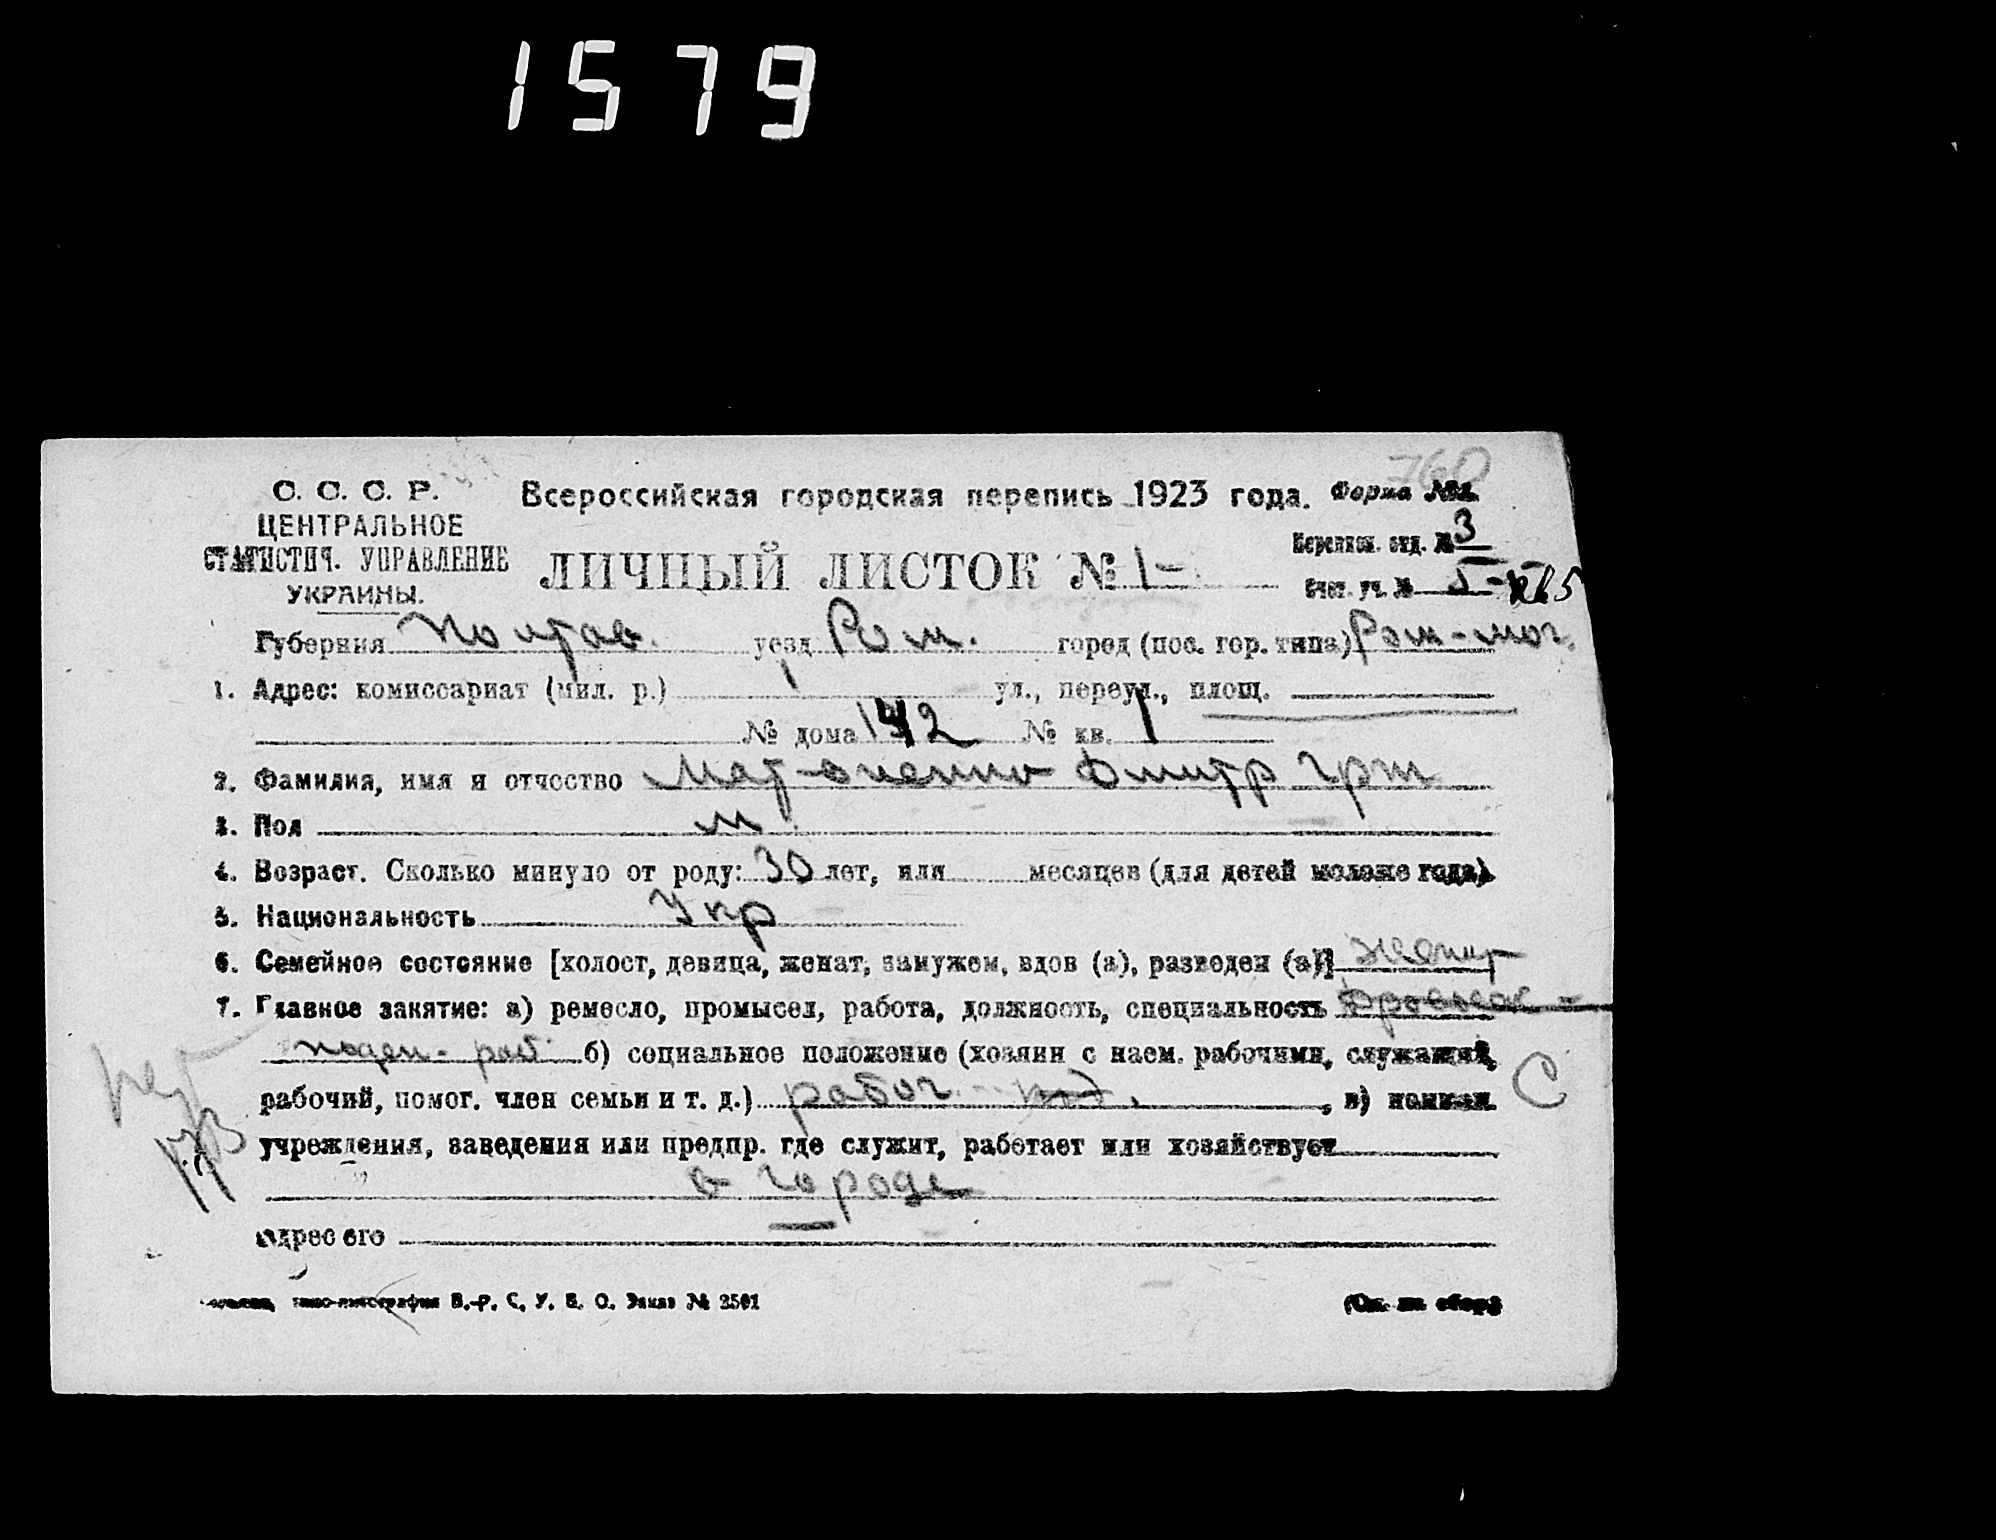 1579
760
С. С. С. Р.
ЦЕНТРАЛЬНОЕ
СТАТИСТИЧ. УПРАВЛЕНИЕ
УКРАИНЫ.
Всероссийская городская перепись 1923 года. Форма №
ЛИЧНЫЙ ЛИСТОК № 1-
Переписн. отд. № 3
Счет. уч. №
Губерния Полтав. уезд Ром. город (пос. гор. типа) Ром-
1. Адрес: комиссариат (мил. р.) 1 ул., переул., площ.
№ дома 142 № кв. 1
2. Фамилия, имя и отчество Дмитр Григ
3. Пол м
4. Возраст. Сколько минуло от роду: 30 лет, или месяцев (для детей моложе года)
5. Национальность Укр
6. Семейное состояние [холост, девица, женат, замужем, вдов (а), разведен (а)] женат
7. Главное занятие: а) ремесло, промысел, работа, должность, специальность
поден- раб. б) социальное положение (хозяин с наем. рабочими, служащий,
рабочий, помог. член семьи и т. д.) рабоч. , в) наимен. С
учреждения, заведения или предпр. где служит, работает или хозяйствует
в городе
адрес его
типо-литография В.-Р. С. У. В. О. Заказ № 2501
(См. на обор.)